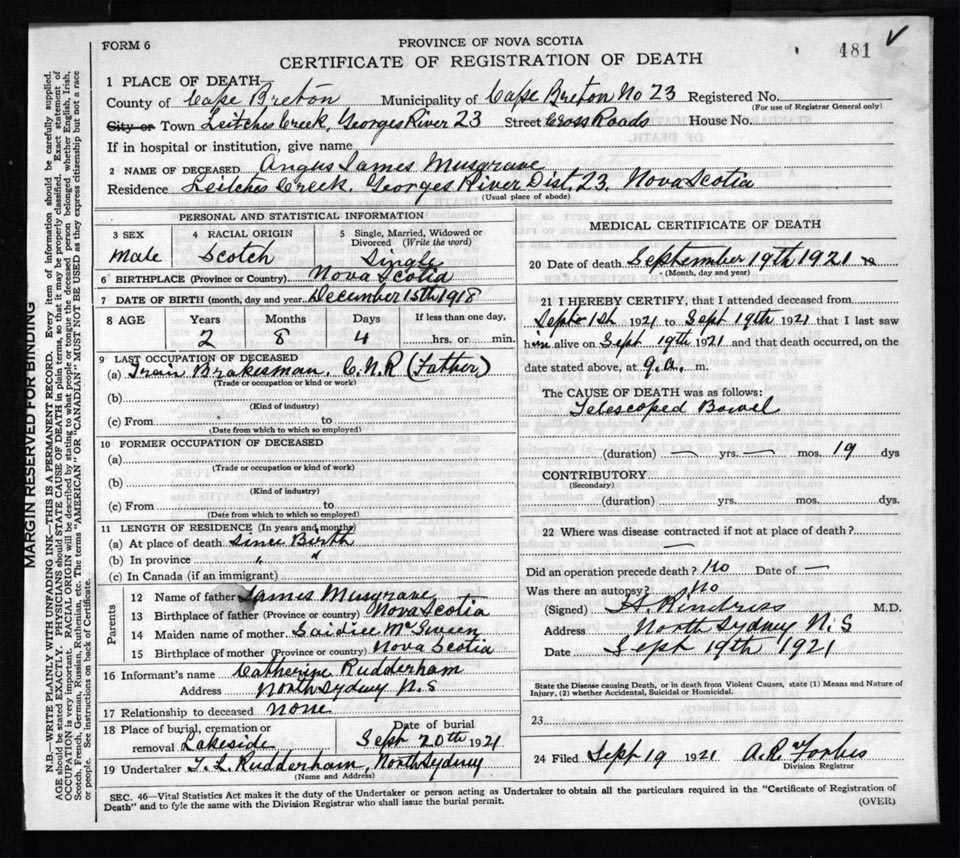 FORM 6
PROVINCE OF NOVA SCOTIA
CERTIFICATE OF REGISTRATION OF DEATH
481 ✓
1 PLACE OF DEATH—
County of Cape Breton Municipality of Cape Breton No 23 Registered No.
(For use of Registrar General only)
City or Town Leitches Creek, Georges River 23 Street Cross Roads House No.
If in hospital or institution, give name
2 NAME OF DECEASED Angus James Musgrave
Residence Leitches Creek. Georges River Dist. 23. Nova Scotia
(Usual place of abode)
PERSONAL AND STATISTICAL INFORMATION
3 SEX Male
4 RACIAL ORIGIN Scotch
5 Single, Married, Widowed or Divorced (Write the word) Single
6 BIRTHPLACE (Province or Country) Nova Scotia
7 DATE OF BIRTH (month, day and year) December 15th 1918
8 AGE Years Months Days If less than one day,
2 8 4 hrs. or min.
9 LAST OCCUPATION OF DECEASED
(a) Train Brakesman. C.N.R (Father)
(Trade or occupation or kind or work)
(b)
(Kind of industry)
(c) From to
(Date from which to which so employed)
10 FORMER OCCUPATION OF DECEASED
(a)
(Trade or occupation or kind of work)
(b)
(Kind of industry)
(c) From to
(Date from which to which so employed)
11 LENGTH OF RESIDENCE (In years and months)
(a) At place of death Since Birth
(b) In province " "
(c) In Canada (if an immigrant)
Parents
12 Name of father James Musgrave
13 Birthplace of father (Province or country) Nova Scotia
14 Maiden name of mother
15 Birthplace of mother (Province or country) Nova Scotia
16 Informant's name Catherine Rudderham
Address North Sydney N.S
17 Relationship to deceased none
18 Place of burial, cremation or removal Lakeside
Date of burial Sept 20th 1921
19 Undertaker T. L. Rudderham, North Sydney
(Name and Address)
MEDICAL CERTIFICATE OF DEATH
20 Date of death September 19th 1921 19
(Month, day and year)
21 I HEREBY CERTIFY, that I attended deceased from
Sept 1st 1921 to Sept 19th 1921 that I last saw
him alive on Sept 19th 1921 and that death occurred, on the
date stated above, at 9.a. m.
The CAUSE OF DEATH was as follows:
Telescoped Bowel
(duration) — yrs. — mos. 19 dys
CONTRIBUTORY
(Secondary)
(duration) yrs. mos. dys.
22 Where was disease contracted if not at place of death?
—
Did an operation precede death? No Date of —
Was there an autopsy? No
(Signed) M.D.
Address North Sydney N.S
Date Sept 19th 1921
State the Disease causing Death, or in death from Violent Causes, state (1) Means and Nature of Injury, (2) whether Accidental, Suicidal or Homicidal.
23
24 Filed Sept 19 1921 A.R. Forbes
Division Registrar
SEC. 46—Vital Statistics Act makes it the duty of the Undertaker or person acting as Undertaker to obtain all the particulars required in the "Certificate of Registration of
Death" and to fyle the same with the Division Registrar who shall issue the burial permit.
(OVER)
MARGIN RESERVED FOR BINDING
N.B.—WRITE PLAINLY WITH UNFADING INK—THIS IS A PERMANENT RECORD. Every item of information should be carefully supplied.
AGE should be stated EXACTLY. PHYSICIANS should STATE CAUSE OF DEATH in plain terms, so that it may be properly classified. Exact statement of
OCCUPATION is very important. RACIAL ORIGIN will be described by stating to what people or tongue the deceased person belonged whether English, Irish,
Scotch, French, German, Russian, Ruthenian, etc. The terms "AMERICAN" OR "CANADIAN" MUST NOT BE USED as they express citizenship but not a race
or people. See instructions on back of Certificate.